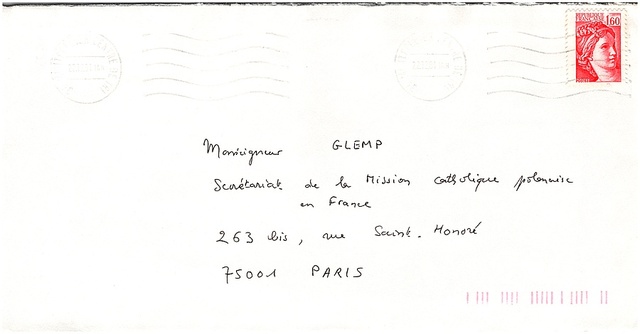 1,60
Monseigneur GLEMP
Secrétariat de la Mission catholique polonaise
en France
263 bis, rue Saint-Honoré
75001 PARIS